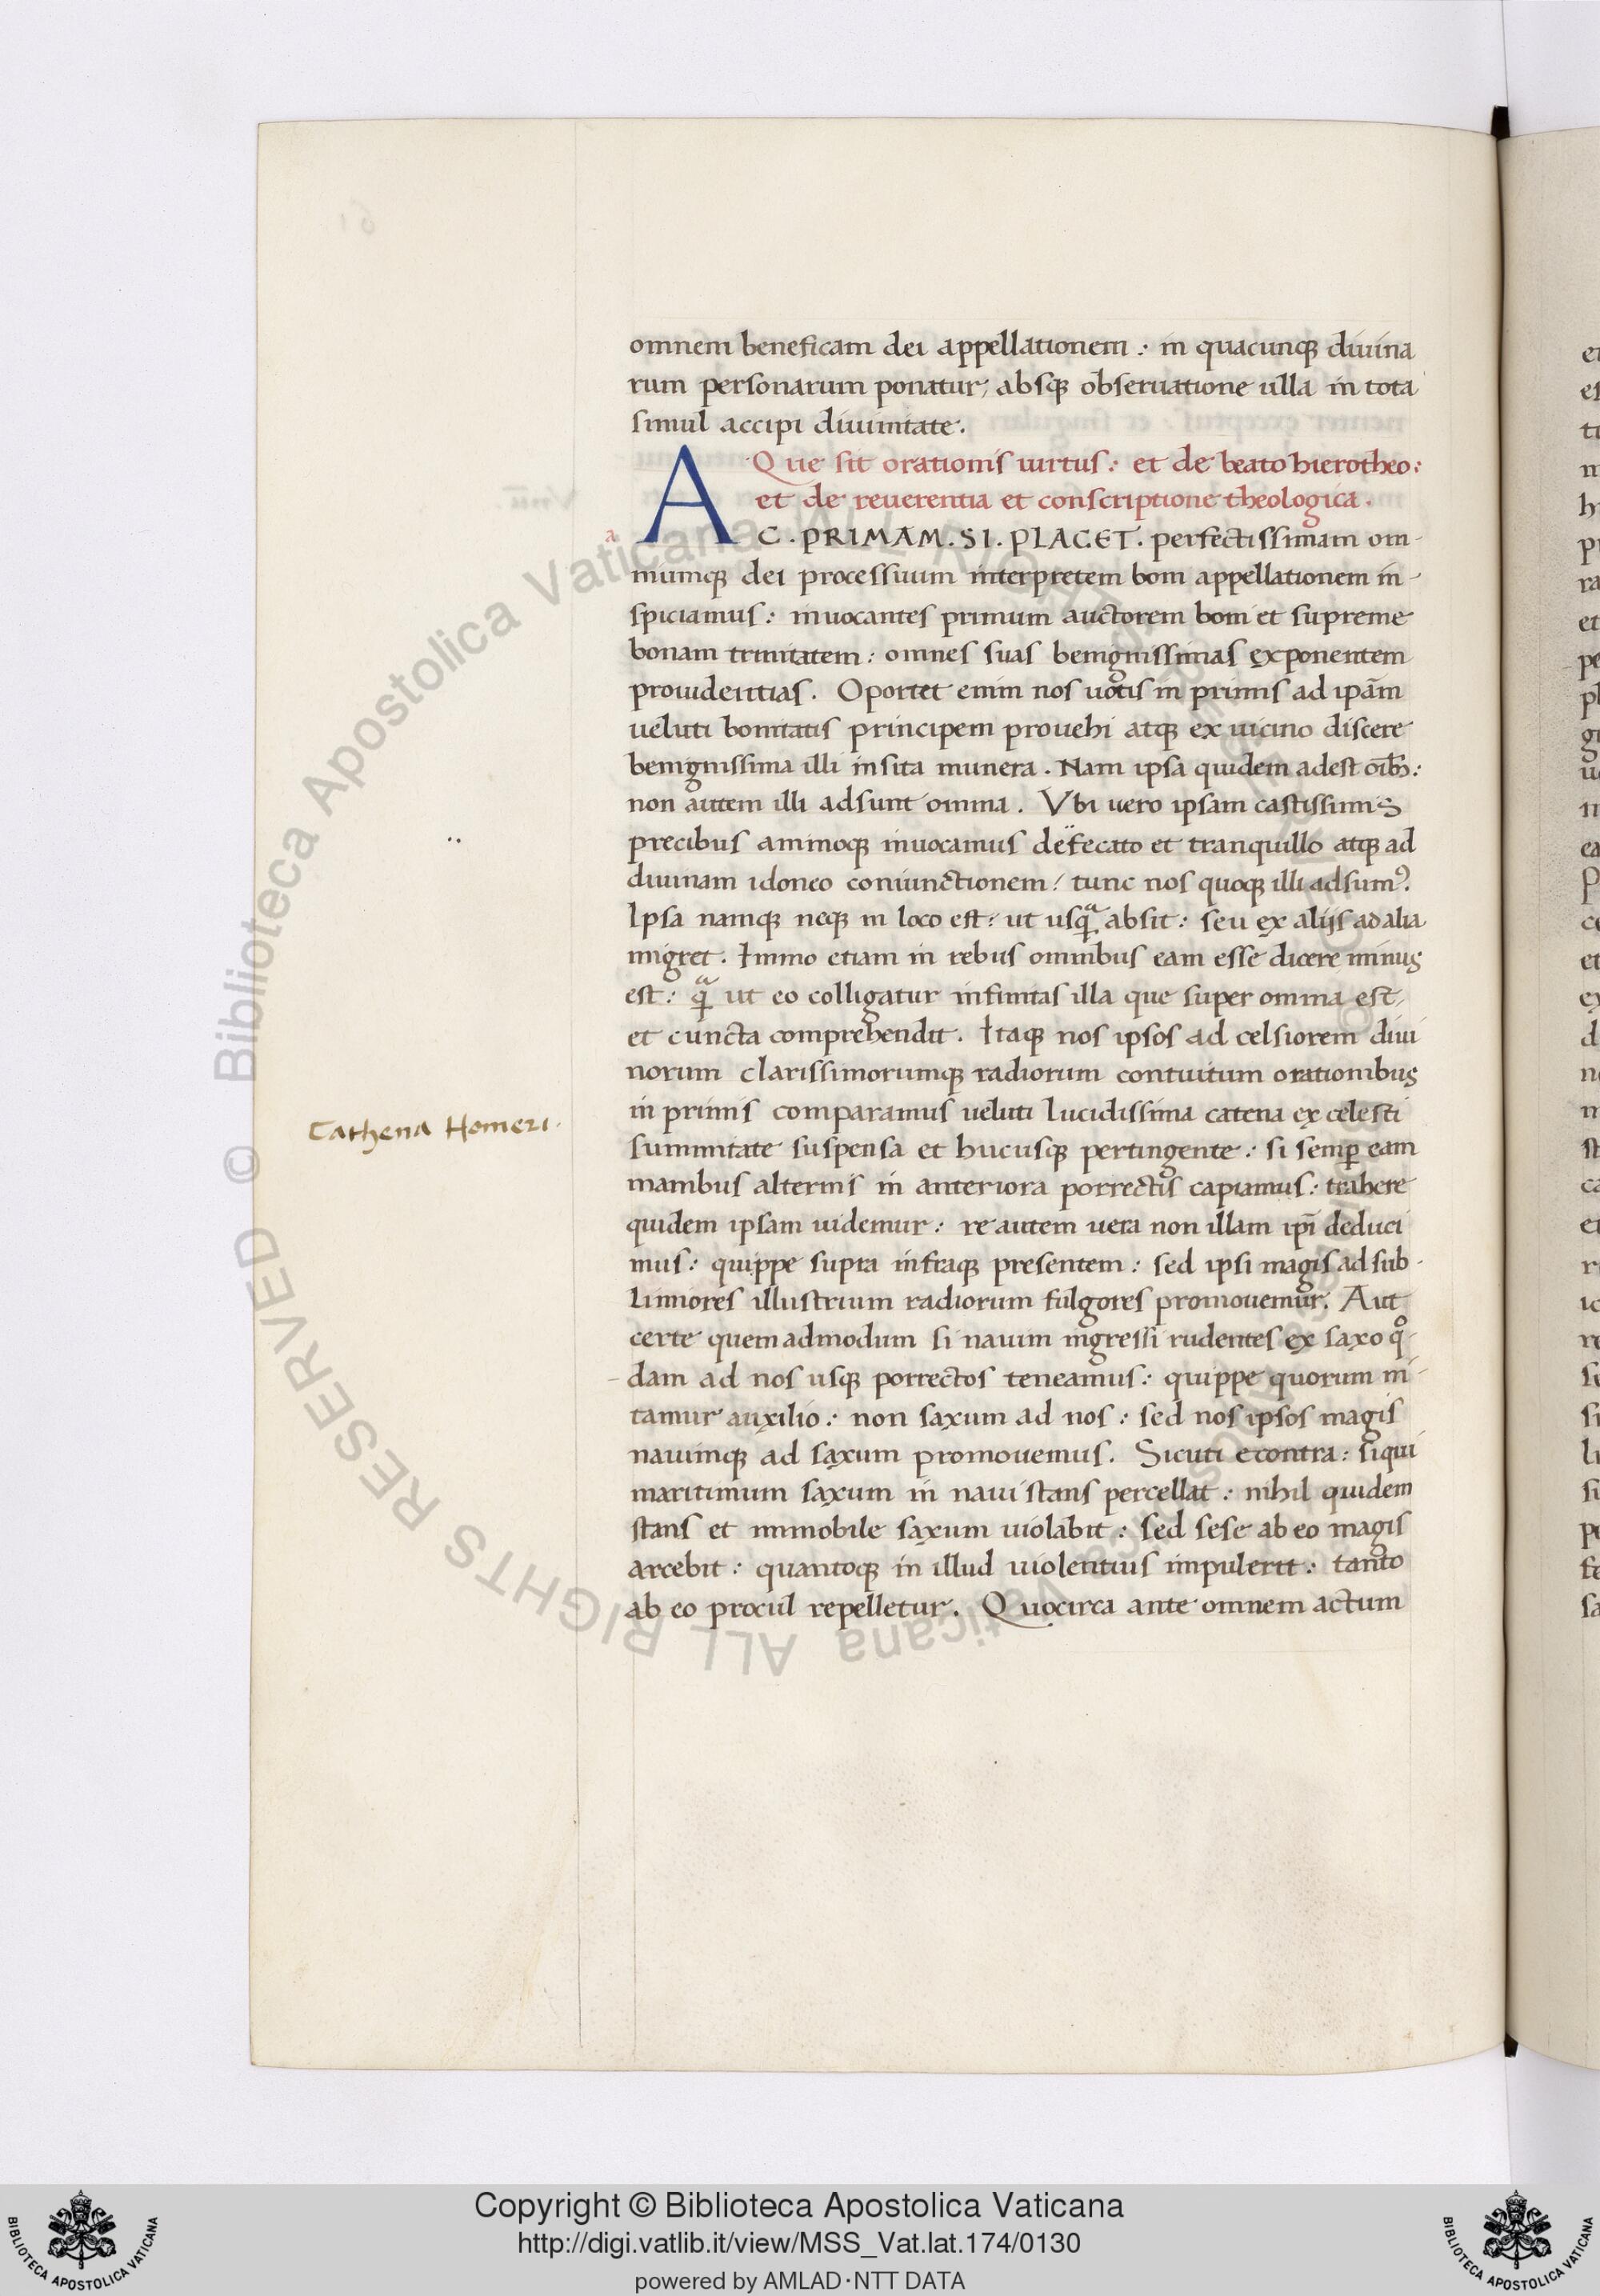 omnem beneficam dei appellationem: in quacunqꝫ diuina
rum personarum ponatur, absqꝫ obseruatione ulla in tota
simul accipi diuinitate.
Que sit orationis uirtus: et de beato hierotheo:
et de reuerentia et conscriptione theologica.
a
AC. PRIMAM. SI. PLACET. perfectissimam om-
niumqꝫ dei processuum interpretem boni appellationem in-
spiciamus: inuocantes primum auctorem boni et supreme
bonam trinitatem: omnes suas benignissimas exponentem
prouidentias. Oportet enim nos uotis in primis ad ipām
ueluti bonitatis principem prouehi atqꝫ ex uicino discere
benignissima illi insita munera. Nam ipsa quidem adest oībꝫ:
non autem illi adsunt omnia. Vbi uero ipsam castissimis
precibus animoqꝫ inuocamus defecato et tranquillo atqꝫ ad
diuinam idoneo coniunctionem: tunc nos quoqꝫ illi adsumꝰ.
Ipsa namqꝫ neqꝫ in loco est: ut usqᷓ absit: seu ex alijs ad alia
migret. Immo etiam in rebus omnibus eam esse dicere minus
est: qᷓ ut eo colligatur infinitas illa que super omnia est,
et cuncta comprehendit. Itaqꝫ nos ipsos ad celsiorem diui
norum clarissimorumqꝫ radiorum contuitum orationibus
in primis comparamus ueluti lucidissima catena ex celesti
Cathena Homeri.
summitate suspensa et hucusqꝫ pertingente: si semꝑ eam
manibus alternis in anteriora porrectis capiamus: trahere
quidem ipsam uidemur: re autem uera non illam ipī deduci
mus: quippe supra infraqꝫ presentem: sed ipsi magis ad sub-
limiores illustrium radiorum fulgores promouemur. Aut
certe quemadmodum si nauim ingressi rudentes ex saxo qͦ-
dam ad nos usqꝫ porrectos teneamus: quippe quorum ni-
tamur auxilio: non saxum ad nos: sed nos ipsos magis
nauimqꝫ ad saxum promouemus. Sicuti econtra: siqui
maritimum saxum in naui stans percellat: nihil quidem
stans et immobile saxum uiolabit: sed sese ab eo magis
arcebit: quantoqꝫ in illud uiolentius impulerit: tanto
ab eo procul repelletur. Quocirca ante omnem actum
© Biblioteca Apostolica Vaticana ALL RIGHTS RESERVED
Copyright © Biblioteca Apostolica Vaticana
http://digi.vatlib.it/view/MSS_Vat.lat.174/0130
powered by AMLAD·NTT DATA
BIBLIOTECA APOSTOLICA VATICANA
BIBLIOTECA APOSTOLICA VATICANA